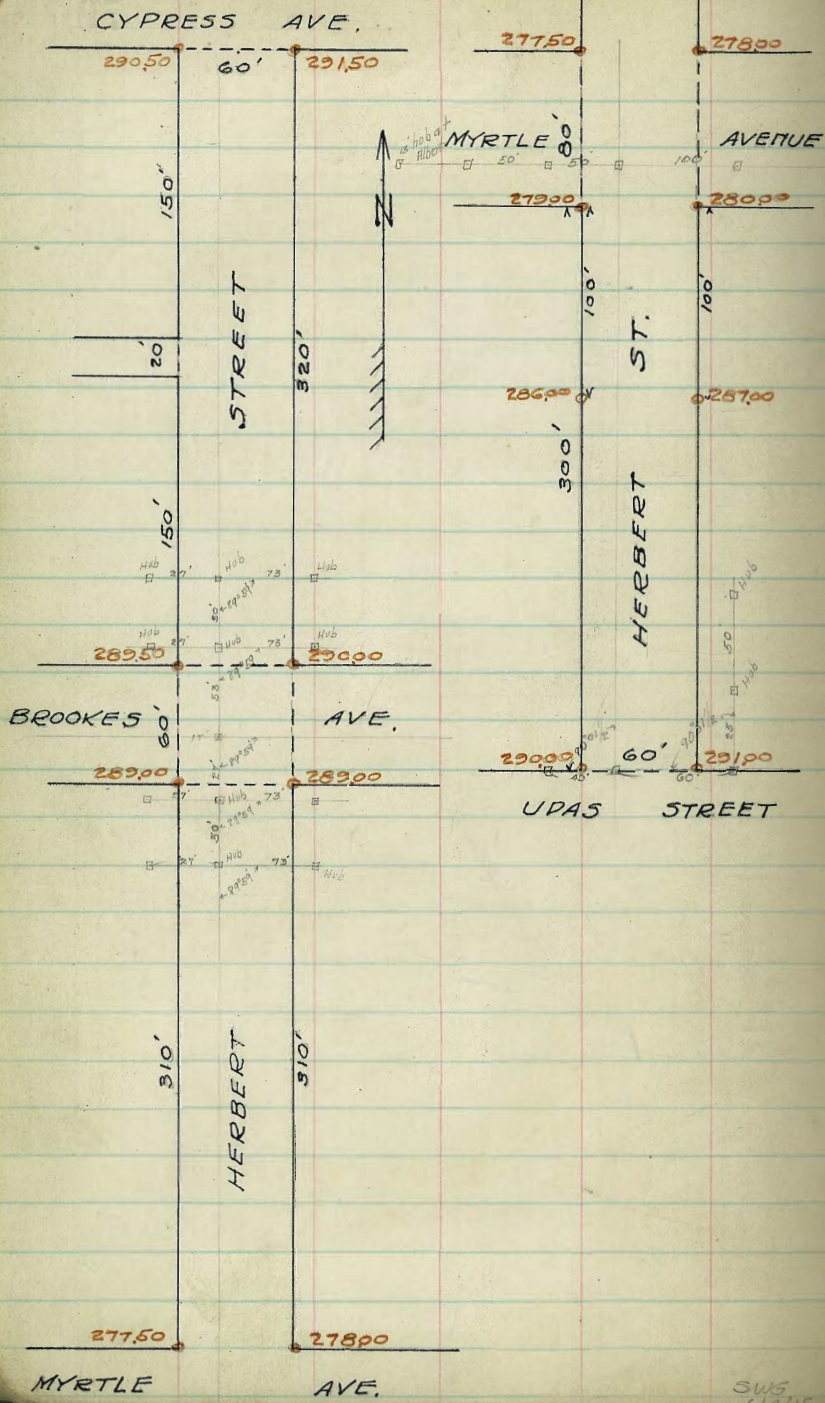 CYPRESS AVE.
290.50 60' 291.50
150"
STREET
20'
320'
N
150'
Hub 27' Hub 73' Hub
50' 89°59'
Hub 27' Hub 73' Hub
289.50 290.00
53' 89°59'
BROOKES 60' AVE.
17'
27' 89°59'
289.00 289.00
27' Hub 73'
50' 89°59'
27' Hub 73' Hub
89°59'
310' HERBERT 310'
277.50 278.00
MYRTLE AVE.
277.50 278.00
MYRTLE 80' AVENUE
50' 50' 100'
279.00 280.00
100' ST. 100'
286.00 287.00
300'
HERBERT
Hub
50'
Hub
25'
290.00 60' 291.00
60'
UPAS STREET
SWG